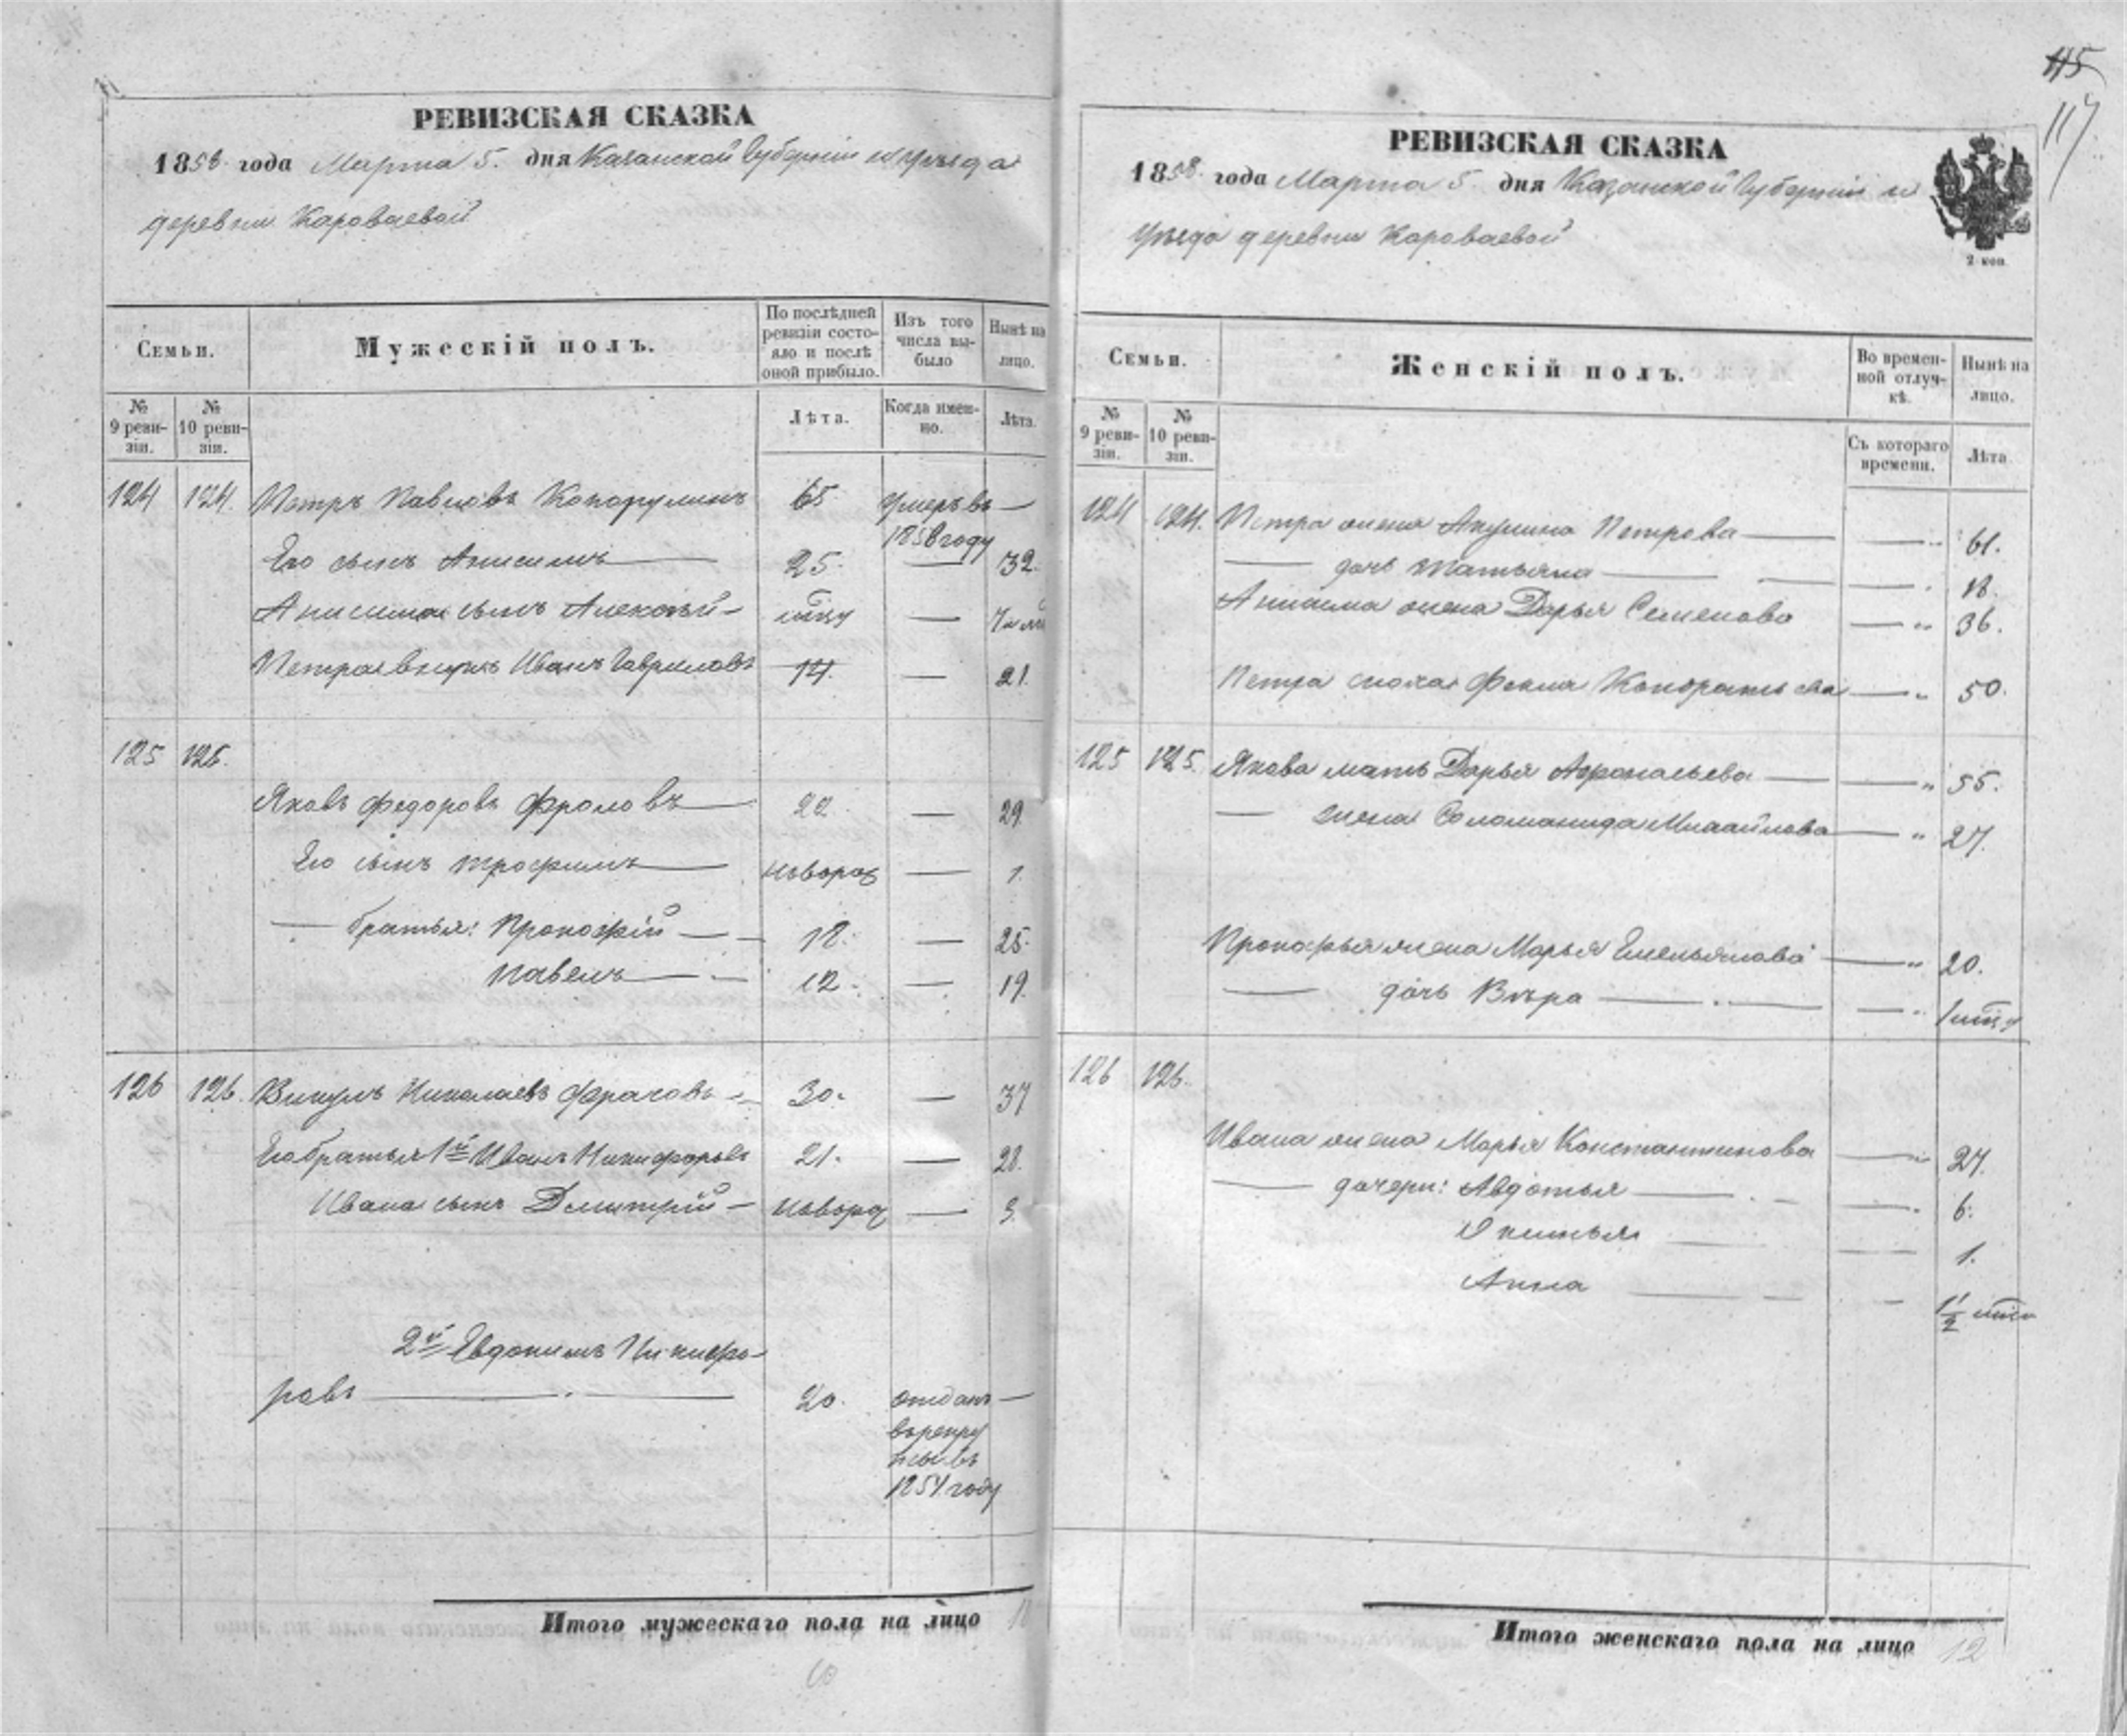 РЕВИЗСКАЯ СКАЗКА
1858 года Марта 5. дня Казанской Губернии и уѣзда
деревни Караваевой
Семьи.
Мужескій полъ.
По послѣдней
ревизіи состо-
яло и послѣ
оной прибыло.
Изъ того
числа вы-
было
Нынѣ на
лицо.
№
9 реви-
зіи.
№
10 реви-
зіи.
Лѣта.
Когда имен-
но.
Лѣта.
124 124. Петръ Павловъ 65 умеръ въ —
1858 году
Его сынъ Анисимъ — 25. — 32.
Анисима сынъ Алексѣй — —
Петра внукъ Иванъ Гавриловъ 14. — 21.
125 125.
Яковъ Федоровъ Фроловъ — 22 — 29.
Его сынъ Трофимъ — новорож — 1.
— братья: Прокофій — 18. — 25.
Павелъ — 12. — 19.
126 126. Викулъ Николаевъ — 30. — 37
Его братья 1й Иванъ Никифоровъ 21. — 28.
Ивана сынъ Дмитрій — новорож —
2й Евдокимъ Никифо-
ровъ — 20. отданъ —
въ рекру
ты въ
1854 году
Итого мужескаго пола на лицо 10
115
117
РЕВИЗСКАЯ СКАЗКА
1858. года Марта 5 дня Казанской Губерніи и
уѣзда деревни Караваевой
2 коп.
Семьи.
Женскій полъ.
Во времен-
ной отлуч-
кѣ.
Нынѣ на
лицо.
№
9 реви-
зіи.
№
10 реви-
зіи.
Съ котораго
времени.
Лѣта.
124 124. Петра жена Акулина Петрова — — 61.
— дочь Татьяна — — 18.
Анисима жена Дарья Семенова — 36.
Петра сноха Фекла Кондратьева — 50.
125 125. Якова мать Дарья Афонасьева — — 55.
— жена Соломанида Михайлова — 27.
Прокофья жена Марья Емельянова — 20.
— дочь Вѣра — —
126 126.
Ивана жена Марья Константинова — 27.
— дочери: Авдотья — — 6.
— — 1.
Анна — —
Итого женскаго пола на лицо 12